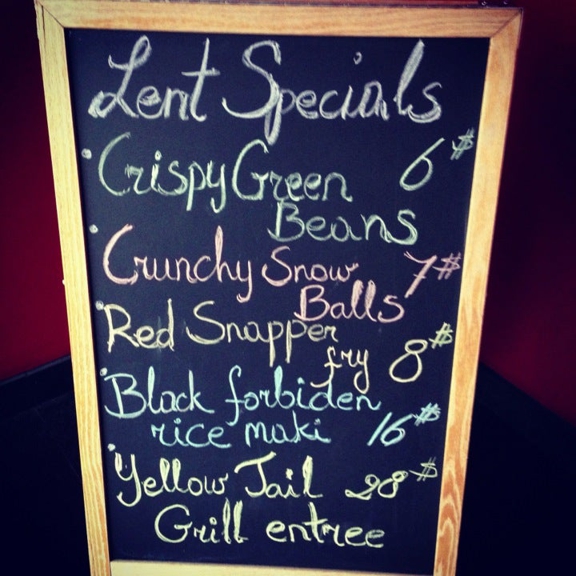 Lent Specials
Crispy Green 6$
Beans
Crunchy Snow 7$
Balls
Red Snapper
fry 8$
Black forbiden
rice maki 16$
Yellow Tail 28$
Grill entree